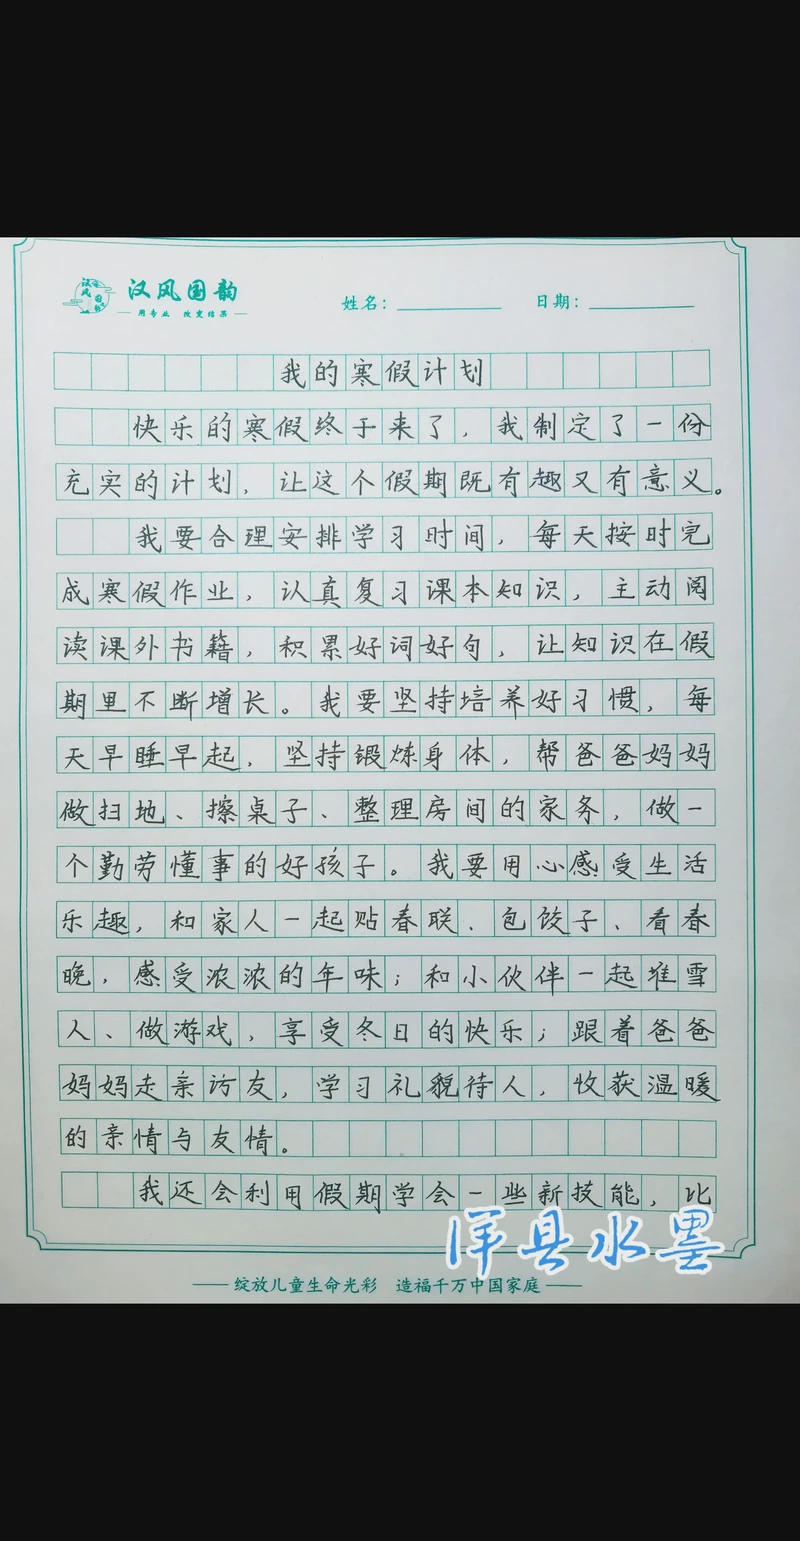 汉风国韵
用专业 改变结果
姓名：
日期：
我的寒假计划
快乐的寒假终于来了，我制定了一份
充实的计划，让这个假期既有趣又有意义。
我要合理安排学习时间，每天按时完
成寒假作业，认真复习课本知识，主动阅
读课外书籍，积累好词好句，让知识在假
期里不断增长。我要坚持培养好习惯，每
天早睡早起，坚持锻炼身体，帮爸爸妈妈
做扫地、擦桌子、整理房间的家务，做一
个勤劳懂事的好孩子。我要用心感受生活
乐趣，和家人一起贴春联、包饺子、看春
晚，感受浓浓的年味；和小伙伴一起堆雪
人、做游戏，享受冬日的快乐；跟着爸爸
妈妈走亲访友，学习礼貌待人，收获温暖
的亲情与友情。
我还会利用假期学会一些新技能，比
县水墨
绽放儿童生命光彩 造福千万中国家庭